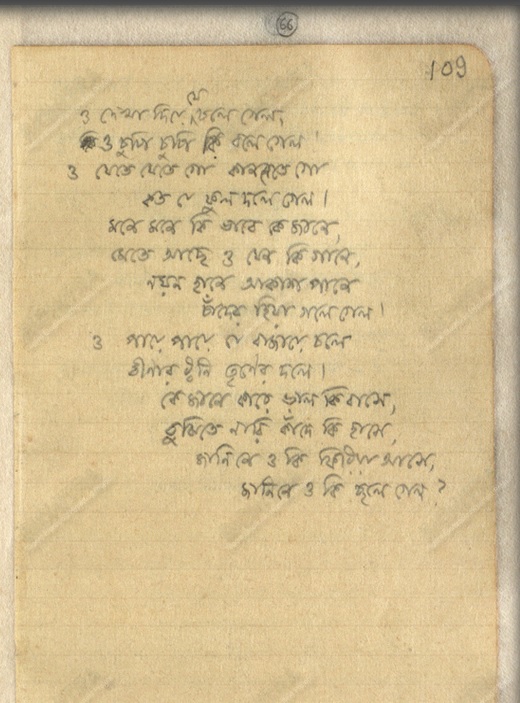 66
109
ও দেখা দিয়ে যে চলে গেল,
ও চুপি চুপি কি বলে গেল!
ও যেতে যেতে গো কাননেতে গো
কত যে ফুল দলে গেল।
মনে মনে কি ভাবে কে জানে,
মেতে আছে ও যেন কি গানে,
নয়ন হানে আকাশ পানে
চাঁদের হিয়া গলে গেল!
ও পায়ে পায়ে যে বাজায়ে চলে
বীণার ধ্বনি তৃণের দলে।
কে জানে কারে ভাল কি বাসে,
বুঝিতে নারি কাঁদে কি হাসে,
জানিনে ও কি ফিরিয়া আসে,
জানিনে ও কি ছলে গেল?